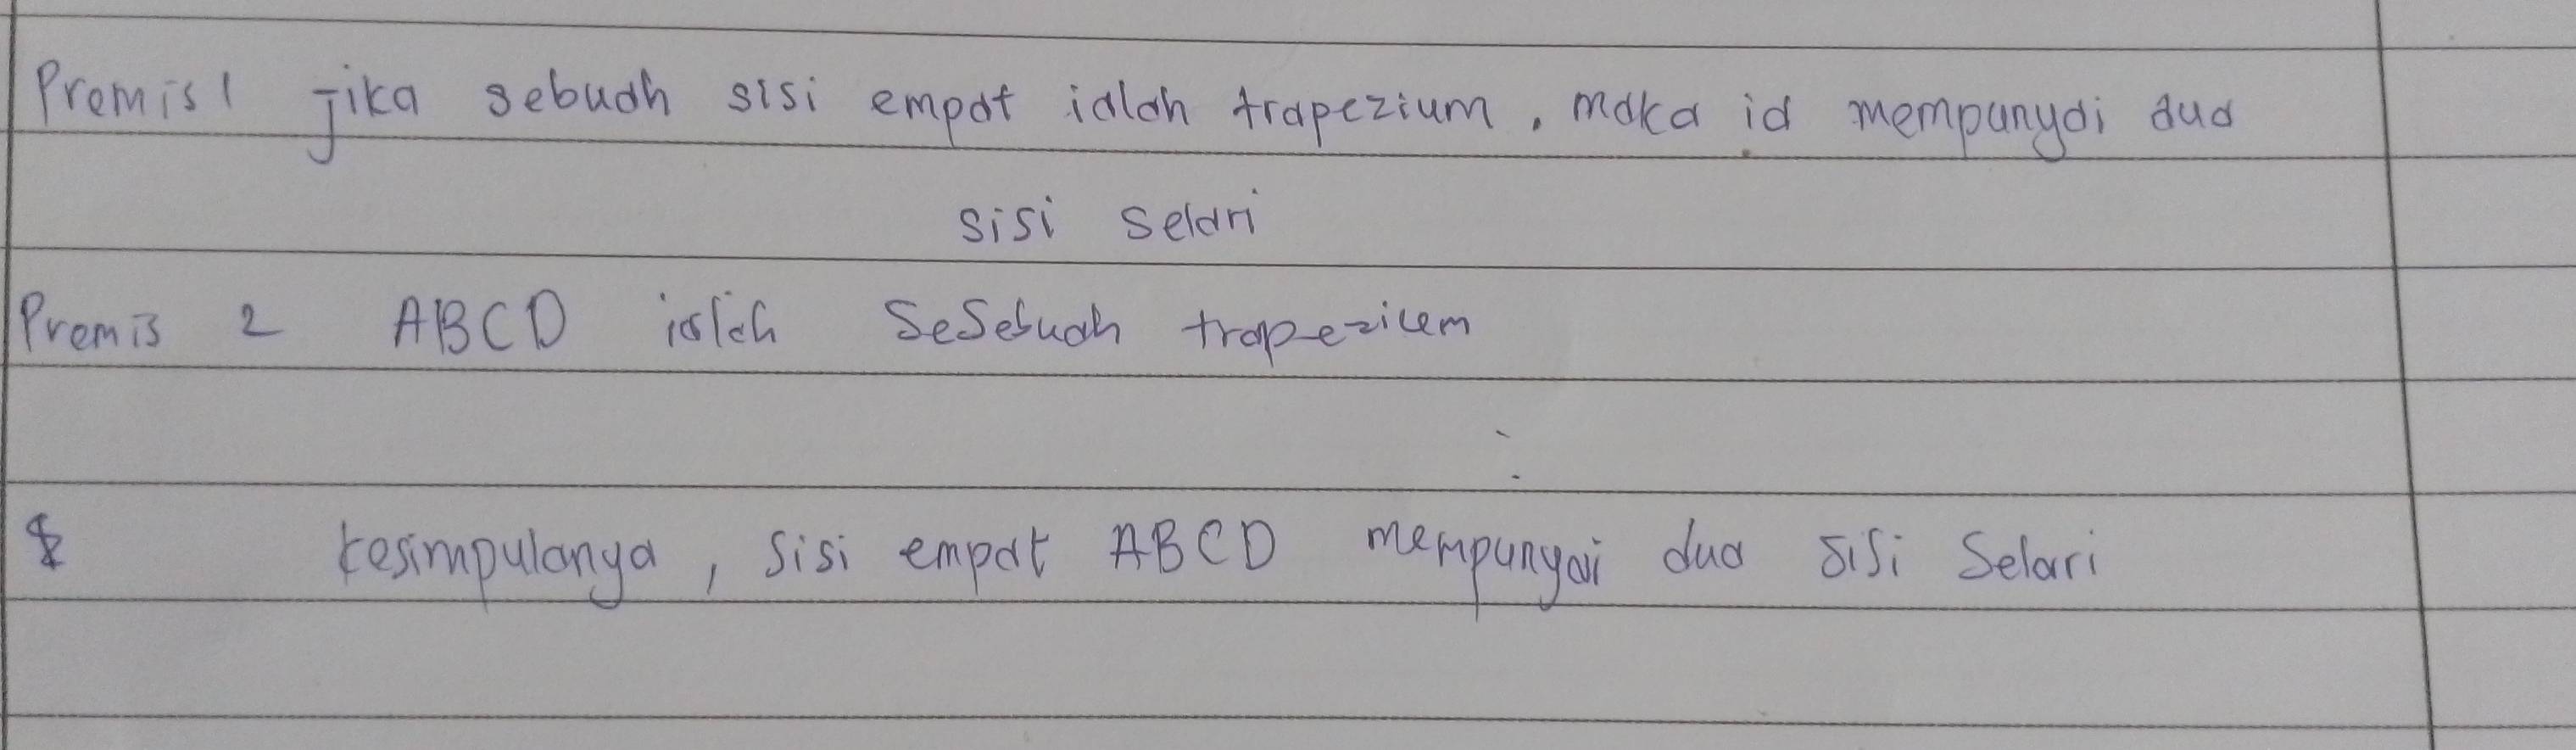 Premis 1 jika sebuah sisi empat ialah trapezium, maka ia mempunyai dua
sisi selari
Premis 2 ABCD ialah Sesebuah trapezium
kesimpulanya, sisi empat ABCD mempunyai dua sisi Selari